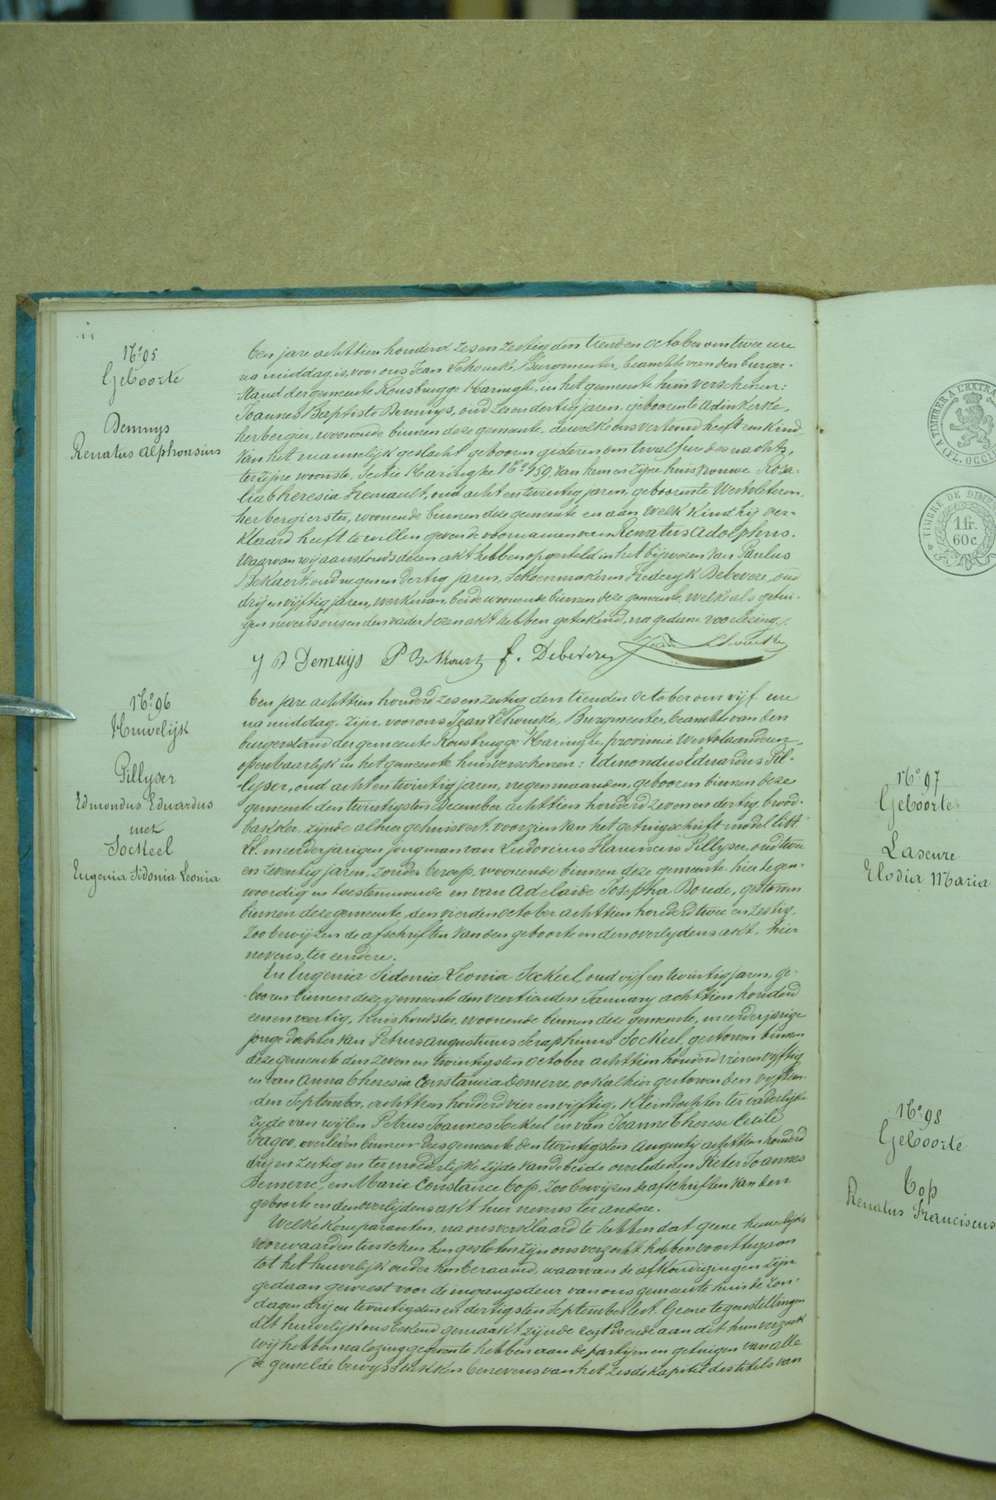 N.o 95
Geboorte
Demuijs
Renatus Alphonsius
Ten jare achttien honderd zes en zestig den tienden October om twee ure
na middag, is voor ons Jean Lehoucke, Burgmeester, beambte van den burger-
stand der gemeente Rousbrugge Haringhe, in het gemeente huis verschenen:
Joannes Baptiste Demuijs, oud zeven dertig jaren, geboren te Adinkerke,
herbergier, woonende binnen deze gemeente, dewelke ons vertoond heeft een kind
van het mannelijk geslacht geboren gisteren om twalf ure des nachts,
ter zijne woonste, Sectie Haringhe N.o 159, van hem en zijne huisvrouwe Roza-
lia Theresia, oud acht en twintig jaren, geboren te Westvleteren,
herbergierster, woonende binnen deze gemeente en aan welk kind hij ver-
klaard heeft te willen geven de voornamen van Renatus Adolphus.
Waarvan wij aanstonds dezen akt hebben opgesteld in het bijwezen van Paulus
oud negen en dertig jaren, schoenmaker en Frederyk Debevere, oud
drij en vijftig jaren, werkman, beide woonende binnen deze gemeente, welke als getui-
gen nevens ons en den vader dezen akt hebben geteekend, na gedane voorlezing.
J B Demuijs P F. Debevere Jean Lehoucke
N.o 96
Huwelijk
Pillyser
Edmondus Eduardus
met
Jockeel
Eugenia Sidonia Leonia
Ten jare achttien honderd zes en zestig den tienden October om vijf ure
na middag. Zijn voor ons Jean Lehoucke, Burgmeester, beambte van den
burgerstand der gemeente Rousbrugge Haringhe, provincie Westvlaanderen,
openbaarlijk in het gemeente huis verschenen: Edmondus Eduardus Pil-
lyser, oud acht en twintig jaren, negen maanden, geboren binnen deze
gemeente den twintigsten December achttien honderd zeven en dertig, brood-
bakker, zijnde alhier gehuisvest, voorzien van het getuigschrift model litt.
meerderjarigen jongman van Ludovicus Pillyser, oud twee
en zeventig jaren, zonder beroep, woonende binnen deze gemeente hier tegen-
woordig en toestemmende en van Adelaide Josepha Borede, gestorven
binnen deze gemeente, den vierden October achttien honderd twee en zestig,
zoo bewijzen de afschriften van den geboorte en den overlydens akt. hier
nevens, ter eendere.
En Eugenia Sidonia Leonia Jockeel oud vijf en twintig jaren, ge-
boren binnen deze gemeente den veertienden January achttien honderd
een en veertig, huishoudster, woonende binnen deze gemeente, meerderjarige
jonge dochter van Petrus Augustinus Seraphinus Jockeel, gestorven binnen
deze gemeente den zeven en twintigsten October achttien honderd vier en vyftig
en van Anna Theresia Constancia Demerre, ook alhier gestorven den vijftien-
den September, achttien honderd vier en vyftig. Kleindochter ter vaderlijke
zijde van wijlen Petrus Joannes Jockeel en van Joanne Therese Cecile
Pagoo, overleden binnen deze gemeente den twintigsten Augusty achttien honderd
drij en zestig en ter moederlijke zijde van de beide overledenen Pieter Joannes
Demerre, en Marie Constance Cop, zoo bewijzen de afschriften van den
geboorte en den overlijdens akt hier nevens ter andere.
Welke komparanten, na ons verklaard te hebben dat geene huwelijks
voorwaarden tusschen hen gesloten zijn ons verzocht hebben voort te gaan
tot het huwelijk onder hen beraamd, waarvan de afkondigingen zijn
gedaan geweest voor de ingangsdeur van ons gemeente huis de zon-
dagen drij en twintigsten en dertigsten September lest. Geene tegenstellingen
dit huwelijk ons bekend gemaakt zijnde regt doende aan dit hun verzoek
wij hebben na lezing gegeven te hebben aan de partijen en getuigen van alle
de gemelde bewijsstukken benevens van het zesde kapittel des titels van
A TIMBRER A L'EXTRA
(FL. OCCI
TIMBRE DE DIME
1 fr.
60 c
N.o 97
Geboorte
Laseure
Elodia Maria
N.o 98
Geboorte
Cop
Renatus Franciscus